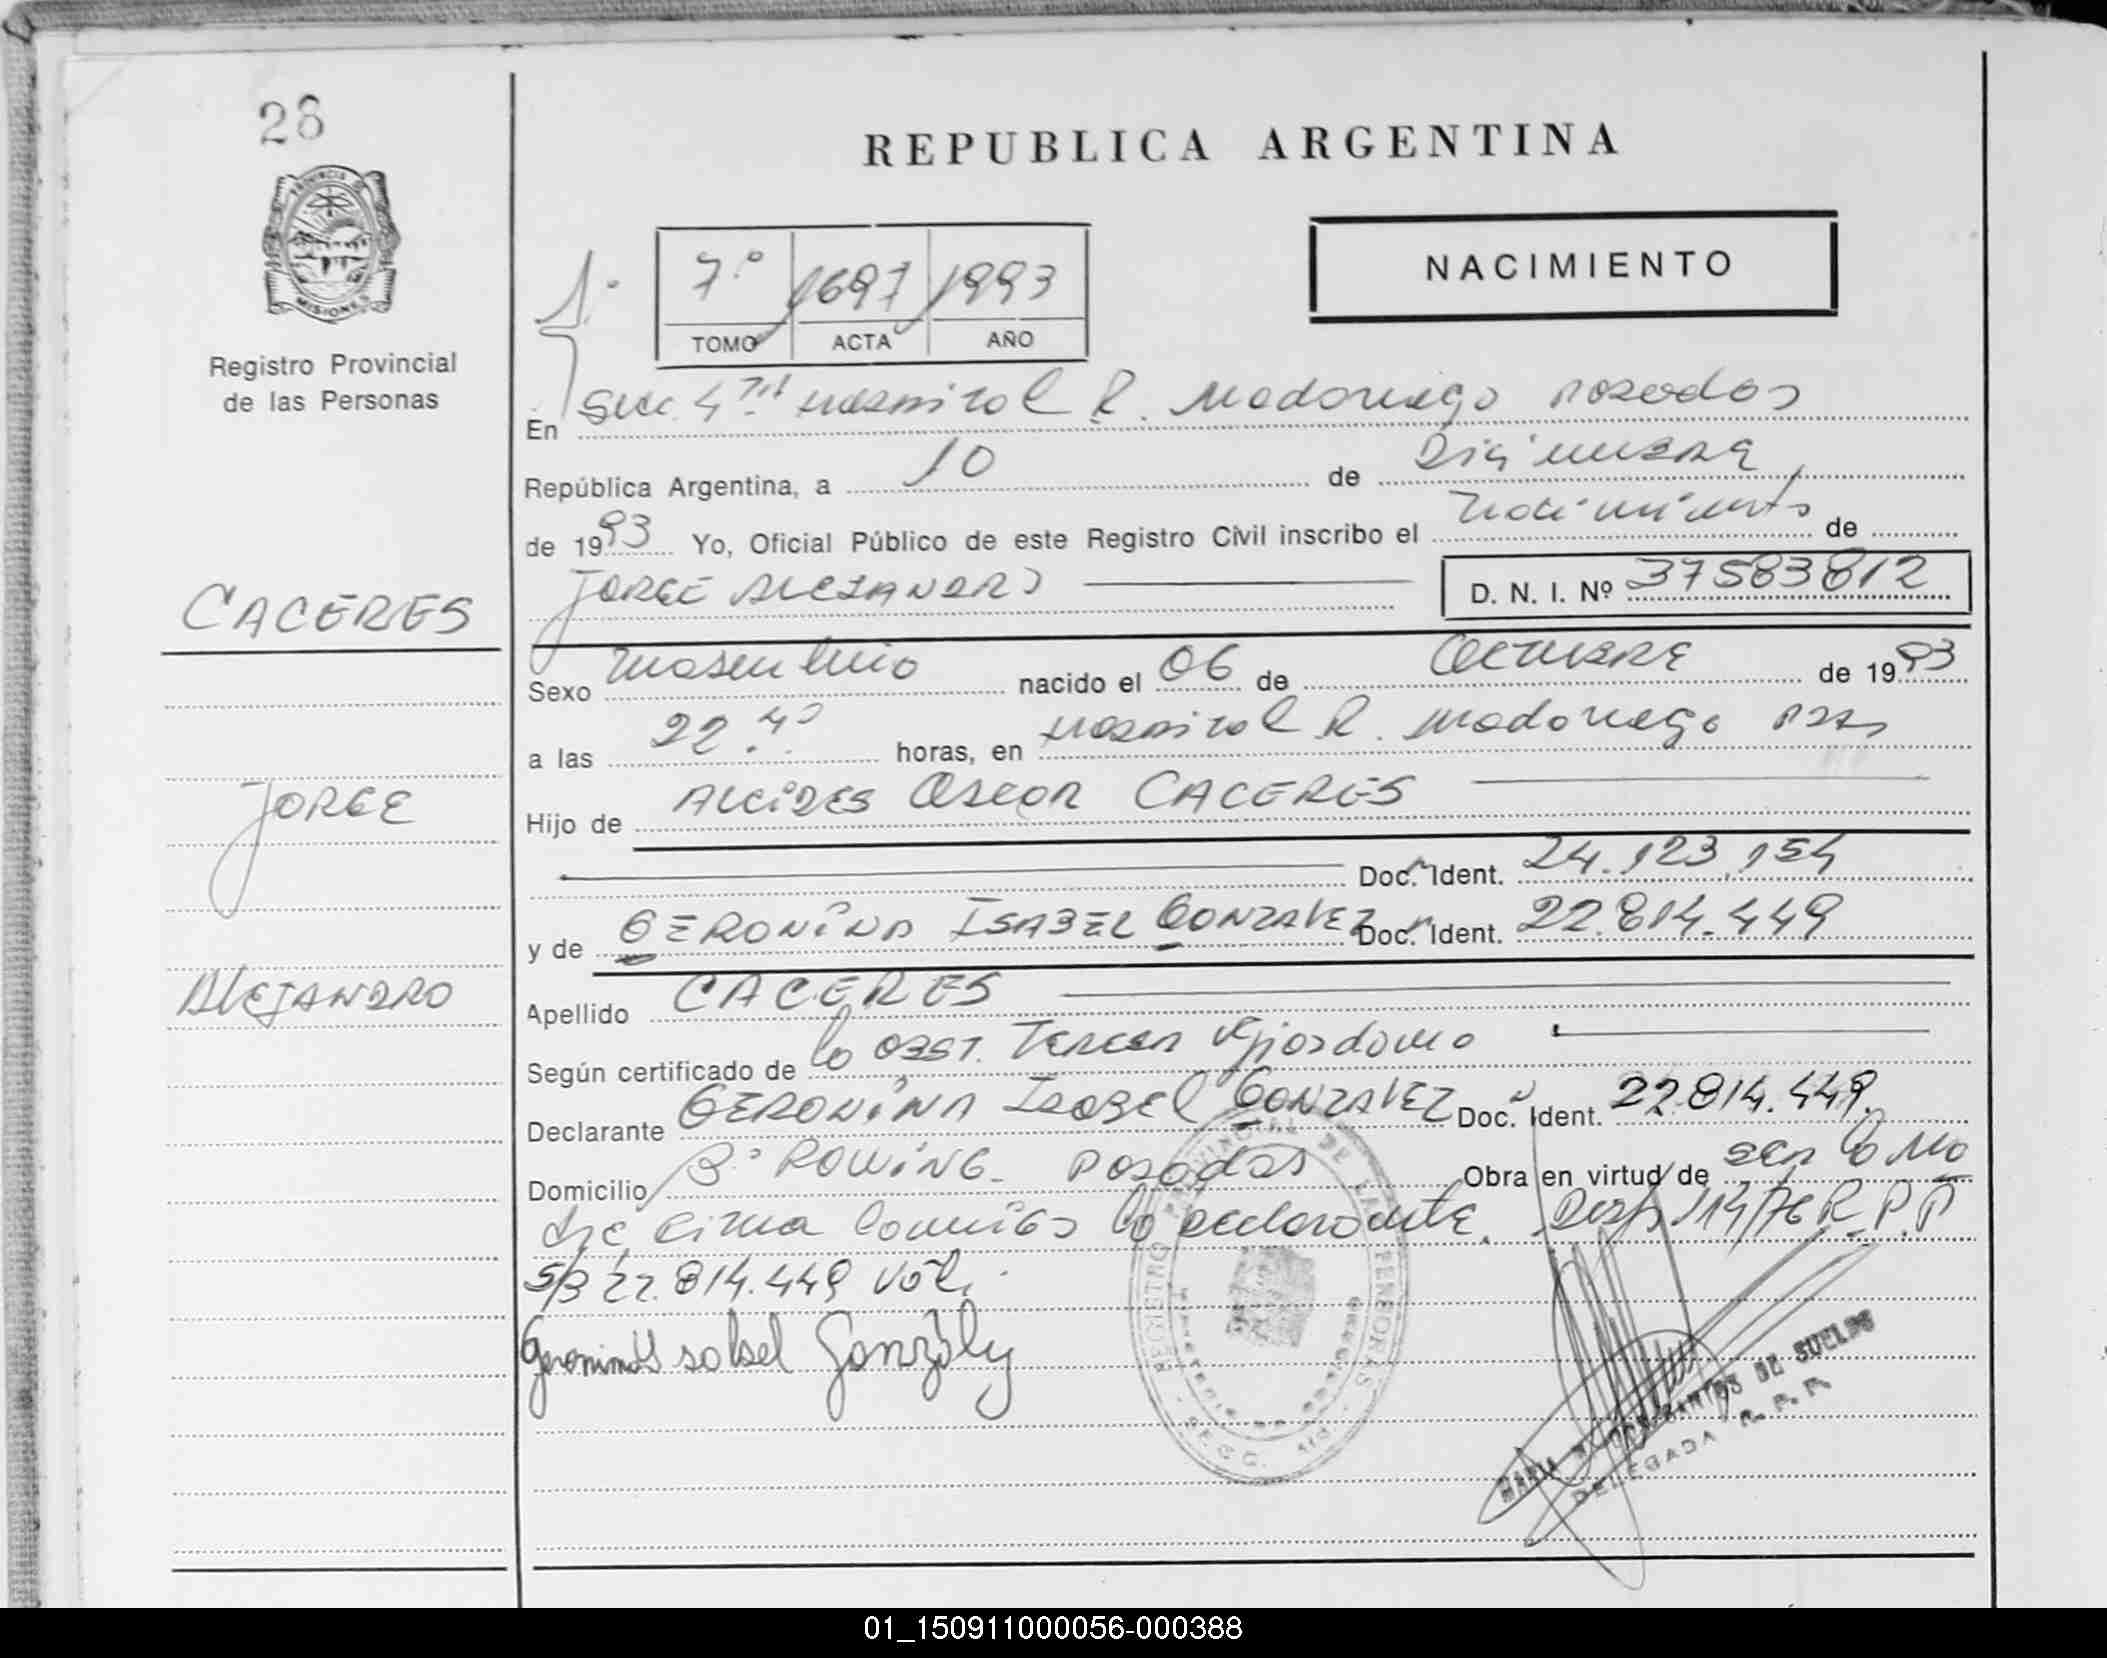 28
REPUBLICA ARGENTINA
NACIMIENTO
PROVINCIA DE
MISIONES
Registro Provincial
de las Personas
1º
7º 1697 1993
TOMO ACTA AÑO
En Secc. 4ta Hospital R. Madariaga Posadas
República Argentina, a 10 de Diciembre
de 1993 Yo, Oficial Público de este Registro Civil inscribo el Nacimiento de
JORGE ALEJANDRO
D. N. I. Nº 37583812
CACERES
Sexo Masculino nacido el 06 de Octubre de 1993
a las 22.40 horas, en Hospital R. Madariaga Pdas
JORGE
Hijo de ALCIDES Oscar CACERES
Doc. Ident. 24.123.154
y de GERONINA ISABEL GONZALEZ Doc. Ident. 22.814.449
ALEJANDRO
Apellido CACERES
Según certificado de la OBST. Teresa Giordano
Declarante GERONINA Isabel GONZALEZ Doc. Ident. 22.814.449.
Domicilio Bº ROWING - Posadas Obra en virtud de ser la Ma
dre, firma conmigo la declarante. Disp. 114/76 R.P.P
S/B 22.814.449 Vale.
Geronima Isabel González
REGISTRO PROVINCIAL DE LAS PERSONAS
MARIA SANTOS DE SUELDO
DELEGADA R. P. P.
01_150911000056-000388